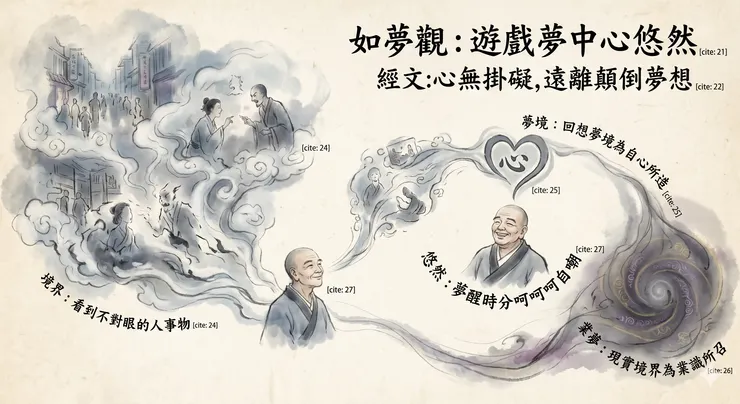 如夢觀：遊戲夢中心悠然[cite: 21]
經文:心無掛礙,遠離顛倒夢想[cite: 22]
[cite: 24]
境界：看到不對眼的人事物[cite: 24]
[cite: 27]
夢境：回想夢境為自心所造[cite: 25]
心
[cite: 25]
[cite: 27]
悠然：夢醒時分呵呵呵自嘲
業夢：現實境界為業識所召
[cite: 26]